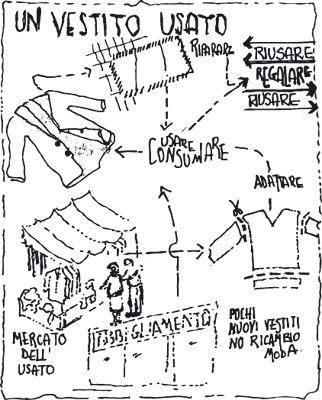 UN VESTITO USATO
RIPARARE
RIUSARE
REGALARE
RIUSARE
USARE
CONSUMARE
ADATTARE
MERCATO
DELL'
USATO
ABBIGLIAMENTO
POCHI
NUOVI VESTITI
NO RICAMBIO
MODA